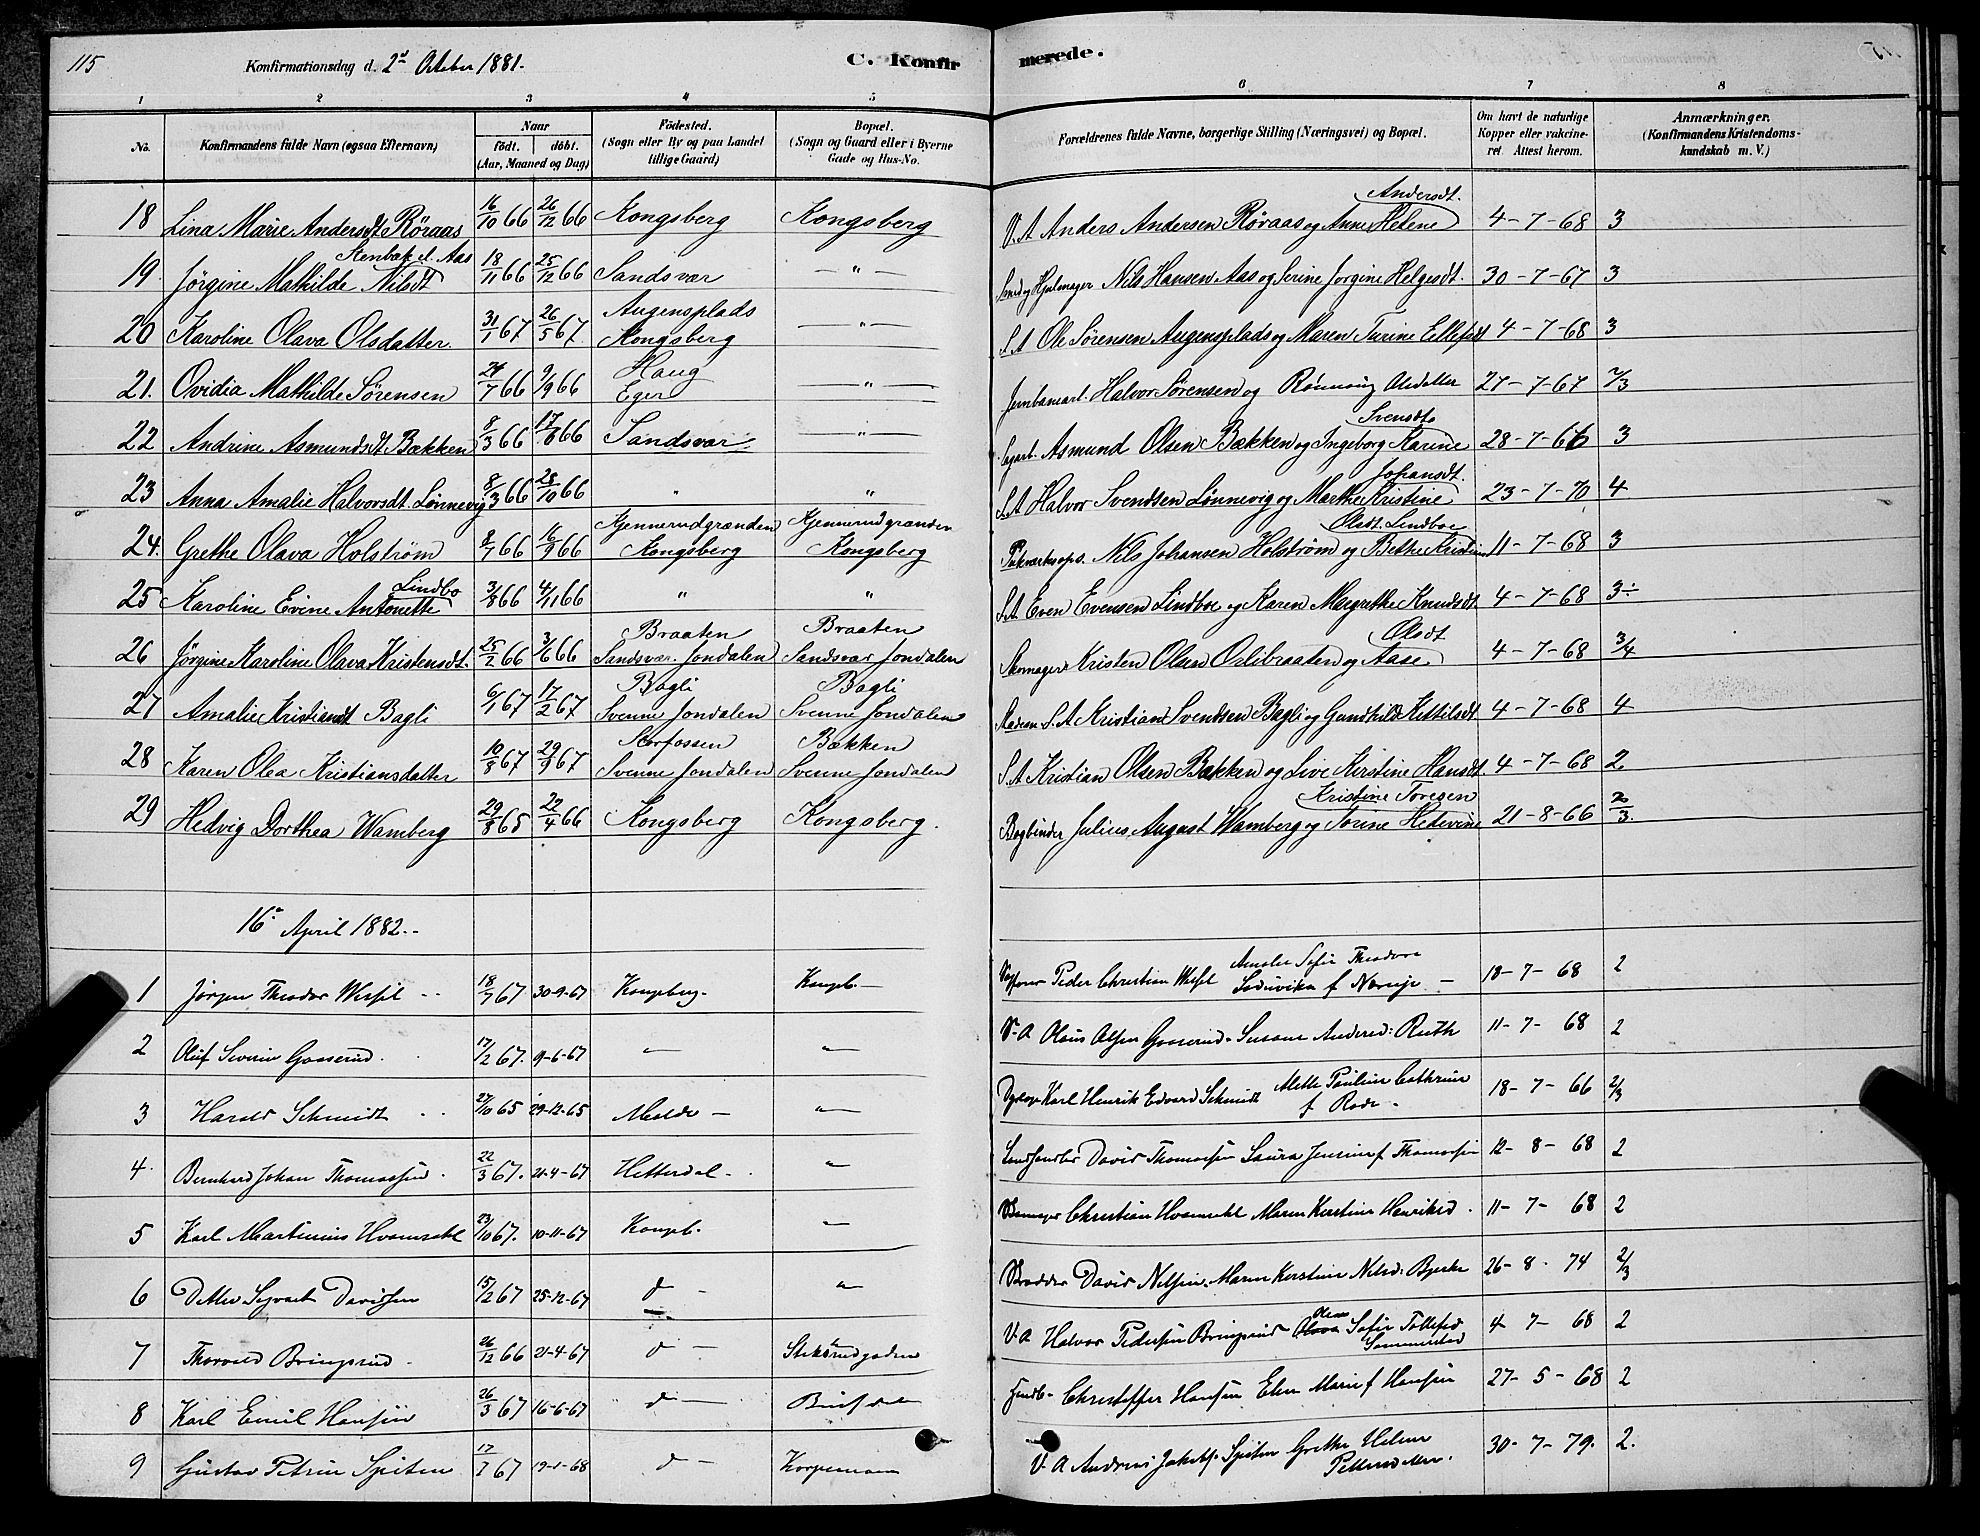 115
Konfirmationsdag d. 2d October 1881.
C. Konfir merede.
1 2 3 4 5 6 7 8
No. Konfirmandens fulde Navn (ogsaa Efternavn) Naar født. døbt. (Aar, Maaned og Dag) Fødested. (Sogn eller By og paa Landet tillige Gaard) Bopæl. (Sogn og Gaard eller i Byerne Gade og Hus-No. Forældrenes fulde Navne, borgerlige Stilling (Næringsvei) og Bopæl. Om havt de naturlige Kopper eller vakcineret Attest herom. Anmærkninger. (Konfirmandens Kristendomskundskab m. V.)
18 Lina Marie Andersdt Röraas 16/10 66 26/12 66 Kongsberg Kongsberg V.A Anders Andersen Røraas og Anne Helene Andersdt. 4-7-68 3
19 Jørgine Mathilde Nilsdt Stenbæk el. Aas 18/11 66 25/12 66 Sandsvær —"— Smed og Hjulmager Nils Hansen Aas og Serine Jorgine Helgesdt. 30-7-67 3
20 Karoline Olava Olsdatter. 31/1 67 26/5 67 Augensplads Kongsberg —"— S.A Ole Sørensen Augensplads og Maren Turine Ellefsdt 4-7-68 3
21. Ovidia Mathilde Sørensen 24/7 66 9/9 66 Haug Eger —"— Jernbanearb. Halvor Sørensen og Rönnaug Olsdatter 27-7-67 2/3
22 Andrine Asmundsdt Bækken 8/3 66 17/6 66 Sandsvær —"— Sagarb. Asmund Olsen Bækken og Ingeborg Karine Svendsdt 28-7-66 3
23 Anna Amalie Halvorsdt. Lønnevig 8/3 66 28/10 66 " " S.A Halvor Svendsen Lönnevig og Marthe Kristine Johansdt. 23-7-70 4
24. Grethe Olava Holstrøm 8/7 66 16/9 66 Kjennerudgrænden Kongsberg Kjennerudgrænden Kongsberg Pukværksops. Nils Johansen Holstrøm og Bethe Kristine Olsdt. Lindboe 11-7-68 3
25 Karoline Evine Antonette Lindbo 3/8 66 4/11 66 " " S.A Even Evensen Lindboe og Karen Margrethe Knudsdt 4-7-68 3÷
26 Jørgine Karoline Olava Kristensdt. 25/2 66 3/6 66 Braaten Sandsvær. Jondalen Braaten Sandsvær Jondalen Skomager Kristen Olsen Orlibraaten og Aase Olsdt 4-7-68 3/4
27 Amalie Kristiansdt Bagli 6/1 67 17/2 67 Bagli Svenne Jondalen Bagli Svenne Jondalen S.A Kristian Svendsen Bagli og Gundhild Kittilsdt 4-7-68 4
28 Karen Olea Kristiansdatter 10/8 67 29/9 67 Korfossen Svenne Jondalen Bækken Svenne Jondalen S.A Kristian Olsen Bækken og Live Kirstine Hansdt 4-7-68 2
29 Hedvig Dorthea Wamberg 29/8 65 22/4 66 Kongsberg Kongsberg. Bogbinder Julius August Wamberg og Torine Hedevine Kristine Toresen 21-8-66 2/3
16de April 1882.
1 Jørgen Theodor Wessel 18/7 67 30-9-67 Kongsberg Kongsb. Peder Christian Wessel Amalie Sofie Theodora Lodovika f Norup 18-7-68 2
2 Oluf Severin Gaaserud 17/2 67. 9-6-67 — " — V.A Olaus Olsen Gaaserud Susane Andersd: Ruth 11-7-68 2
3 Harald Schmidt 27/10 65 29-12-65 Molde — " Karl Henrik Edvard Schmidt Mette Pauline Cathrine f Rode 18-7-66 2/3
4. Bernhard Johan Thomassen 22/3 67. 21-4-67 Hitterdal — " Landhandler David Thomassen Laura Jensine f Thomassen 12-8-68 2
5 Karl Martinius Hvamsahl 23/10 67. 10-11-67 Kongsb. " Christian Hvamsahl Maren Kirstine Henriksd. 11-7-68 2
6 Ditlev Sigvart Davidsen 15/2 67 25-12-67 d — " David Nilsen Maren Kirstine Nilsd: Bjerke 26-8-74 2/3
7 Thorvald Bringsrud 26/12 66 21-4-67 d — Stiksrudgaden V.A Halvor Pedersen Bringsrud Olava Olava Sofie Tollefsd Sommerstad 4-7-68 2
8 Karl Emil Hansen 26/3 67 16-6-67 d — Christoffer Hansen Elen Marie f Hansen 27-5-68 2
9 Gustav Petrin Spiten 17/7 67 19-1-68 d — Korpemoen V.A Andreas Jakobs. Spiten Grethe Helene Pettersdatter. 30-7-79. 2.